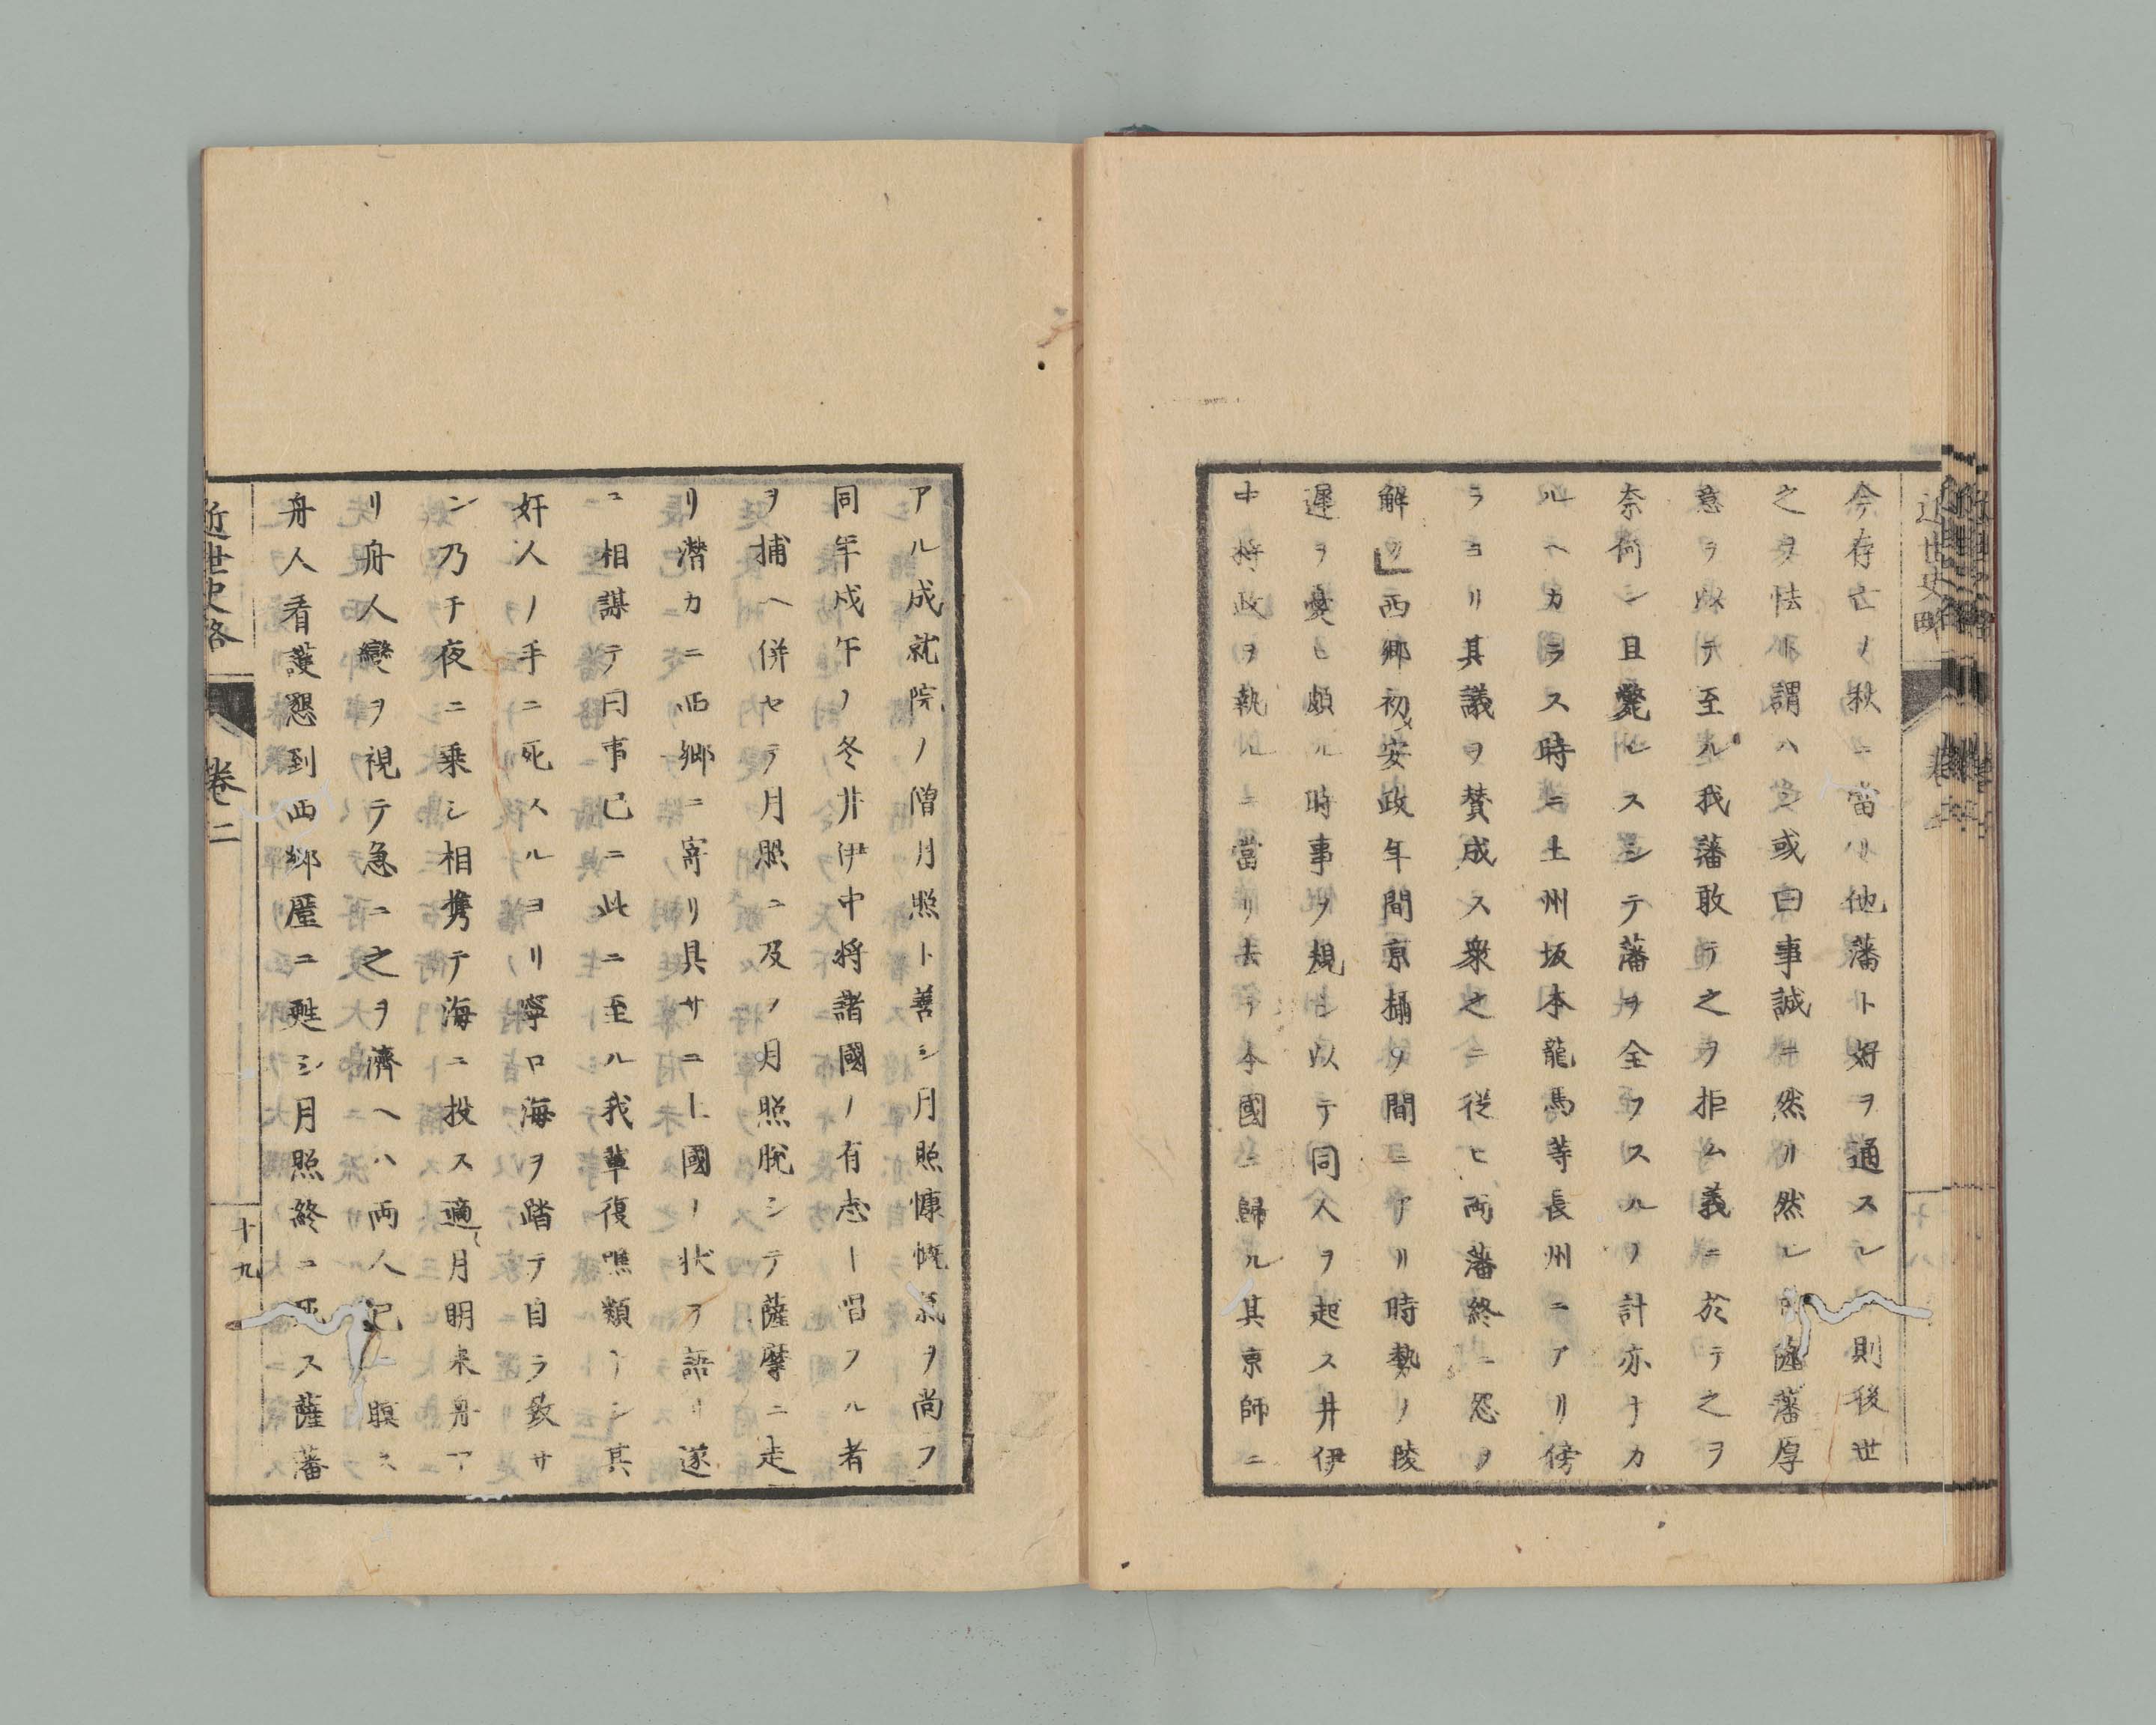 今存亡ノ秋ニ當リ他藩ト好ヲ通スレハ則後世
之ヲ怯ト謂ハン或曰事誠ニ然リ然レ𪜈薩藩厚
意ヲ以テ至ル我藩敢テ之ヲ拒ム義ニ於テ之ヲ
奈何シ且斃レスシテ藩ヲ全フスルノ計亦ナカ
ルヘカラス時ニ土州坂本龍馬等長州ニアリ傍
ラヨリ其議ヲ賛成ス衆之ニ從ヒ両藩終ニ怨ヲ
解ク西郷初メ安政年間京攝ノ間ニアリ時勢ノ陵
遲ヲ憂ヒ頗ル時事ヲ規シ以テ同人ヲ起ス井伊
中将政ヲ執ルニ當リ去テ本國ニ歸ル其京師ニ
近世史略
卷二
十八
アル成就院ノ僧月照ト善シ月照慷慨氣ヲ尚フ
同年戊午ノ冬井伊中将諸國ノ有志ー唱フル者
ヲ捕ヘ併セテ月照ニ及フ月照脱シテ薩摩ニ走
リ潜カニ西郷ニ寄リ具サニ上國ノ状ヲ語リ遂
ニ相謀テ曰事已ニ此ニ至ル我輩復噍類ナシ其
奸人ノ手ニ死スルヨリ寧ロ海ヲ踏テ自ラ致サ
ン乃チ夜ニ乗シ相携テ海ニ投ス適〻月明来舟ア
リ舟人變ヲ視テ急ニ之ヲ濟ヘハ両人已ニ瞑ス
舟人看護懇到西郷蘧ニ甦シ月照終ニ死ス薩藩
近世史略
卷二
十九